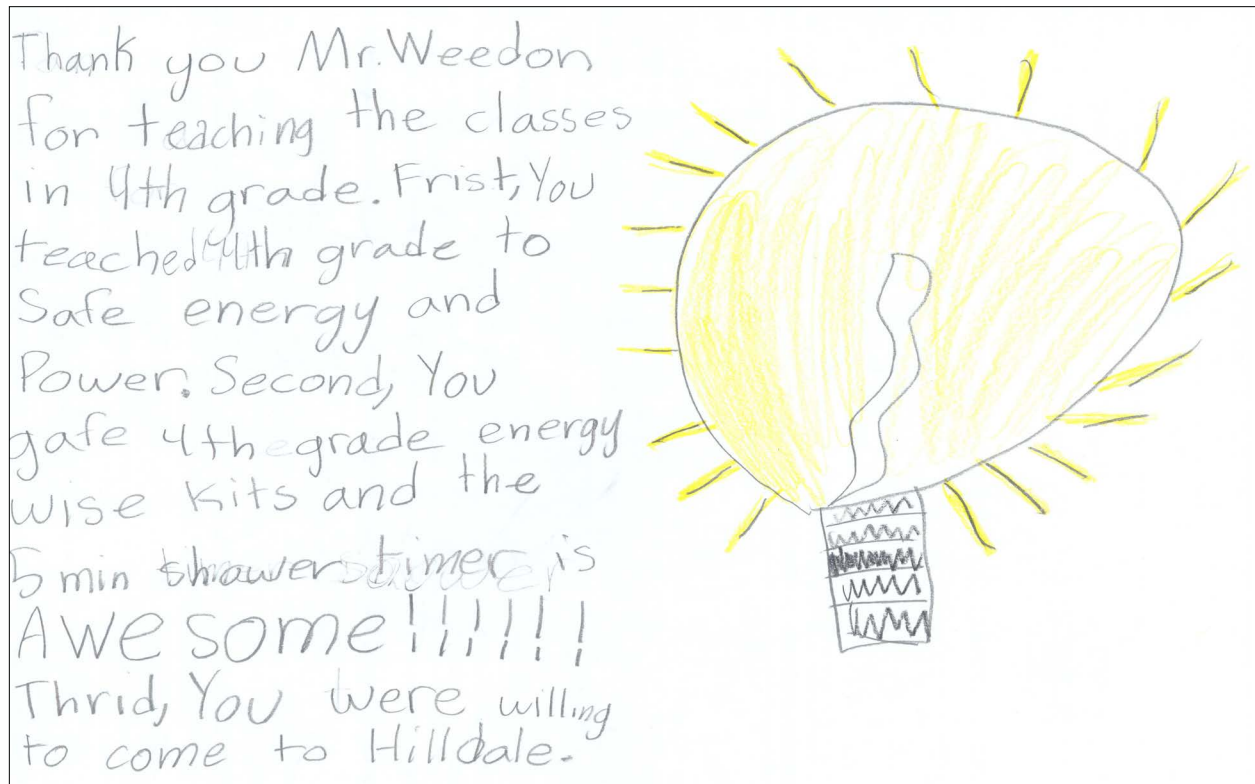 Thank you Mr. Weedon
for teaching the classes
in 4th grade. Frist, You
teached 4th grade to
Safe energy and
Power. Second, You
gafe 4th grade energy
wise kits and the
5 min shower timer is
AWesome!!!!!!
Thrid, You were willing
to come to Hilldale.